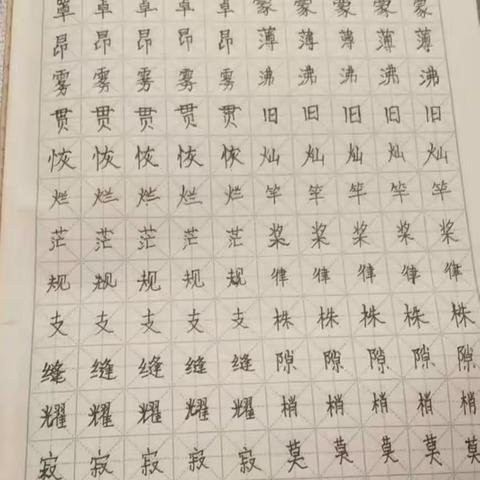 罩卓卓卓卓蒙蒙蒙蒙蒙
昂昂昂昂昂薄薄薄薄薄
雾雾雾雾雾沸沸沸沸沸
贯贯贯贯贯旧旧旧旧旧
恢恢恢恢恢灿灿灿灿灿
烂烂烂烂烂竿竿竿竿竿
茫茫茫茫茫桨桨桨桨桨
规规规规规律律律律律
支支支支支株株株株株
缝缝缝缝缝隙隙隙隙隙
耀耀耀耀耀梢梢梢梢梢
寂寂寂寂寂莫莫莫莫莫